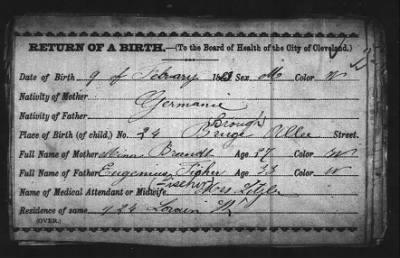 RETURN OF A BIRTH.—(To the Board of Health of the City of Cleveland.)
Date of Birth 9 of Febrary 188 Sex M Color W
Nativity of Mother
Germanie
Nativity of Father
Brough
Place of Birth (of child.) No. 24 Allee Street.
Full Name of Mother Minna Brandt Age 27 Color W
Full Name of Father Eugenius Age 33 Color W
Name of Medical Attendant or Midwife.
Residence of same 924 Lorain St
(OVER.)